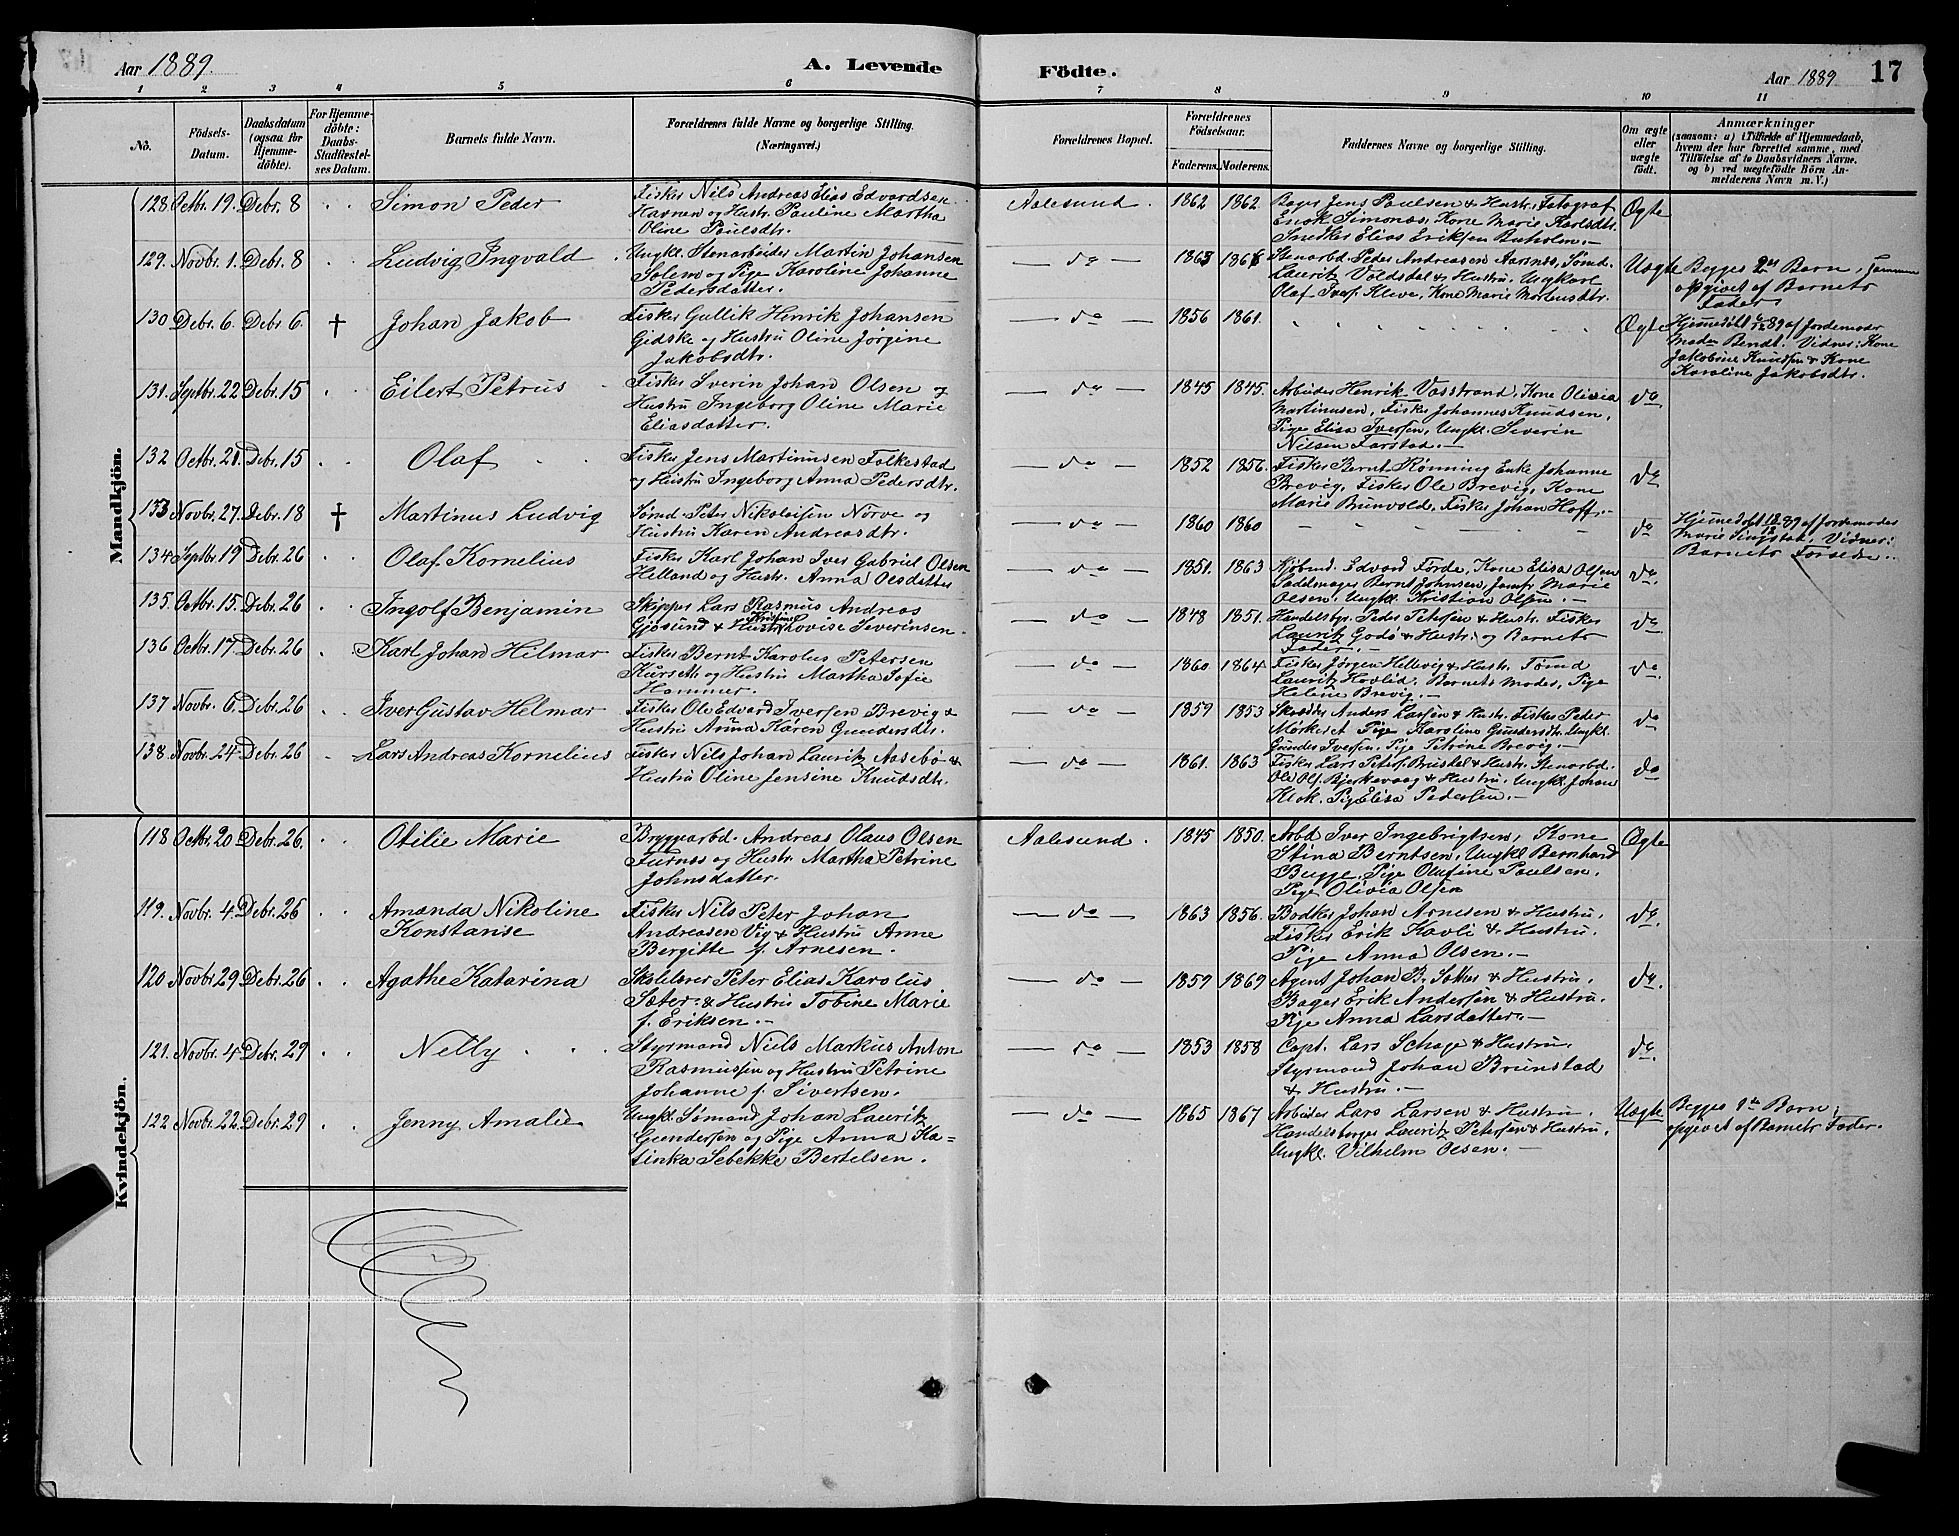 Aar 1889.
A. Levende
Födte.
Aar 1889
17
1 2 3 4 5 6 7 8 9 10 11
No.
Födsels-
Datum.
Daabsdatum
(ogsaa for
Hjemme-
döbte).
For Hjemme-
döbte:
Daabs-
Stadfæstel-
ses Datum.
Barnets fulde Navn.
Forældrenes fulde Navne og borgerlige Stilling.
(Næringsvei.)
Forældrenes Bopæl.
Forældrenes
Födselsaar.
Faderens. Moderens.
Faddernes Navne og borgerlige Stilling.
Om ægte
eller
uægte
födt.
Anmærkninger
(saasom: a) i Tilfælde af Hjemmedaab,
hvem der har forrettet samme, med
Tilföielse af to Daabsvidners Navne.
og b) ved uægtefödte Börn An-
melderens Navn m. V.)
Mandkjön.
128 Octbr. 19. Debr. 8 Simon Peder
Fisker Nils Andreas Elias Edvardsen
Havnen og Hustr. Pauline Martha
Oline Paulsdtr.
Aalesund. 1862 1862
Bager Jens Paulsen & Hustr. Fotograf
Enok Simonæs, Kone Marie Karlsdtr.
Snedker Elias Eriksen Buholm.—
Ægte
129. Novbr. 1. Debr. 8 Ludvig Ingvald
Ungkl. Stenarbeider Martin Johansen
Solem og Pige Karoline Johanne
Pedersdatter.
— do — 1863 1866
Stenarbd. Peder Andreasen Aarsnes, Sömd.
Lauritz Voldsdal & Hustru. Ungkarl
Olaf Ivers. Kleve, Kone Marie Mortensdtr.
Uægte
Begges 2det Barn,
opgivet af Barnets
Fader
130 Debr. 6. Debr. 6 † Johan Jakob
Fisker Gullik Henrik Johansen
Gidske og Hustru Oline Jørgine
Jakobsdtr.
— do — 1856 1861.
Ægte
Hjemmedöbt 6/12 89 af Jordemoder
Mad. Bendt. Vidner: Kone
Jakobine Knudsen & Kone
Karoline Jakobsdtr.
131. Septbr. 22 Debr. 15 Eilert Petrus
Fisker Sverin Johan Olsen og
Hustru Ingeborg Oline Marie
Eliasdatter.
— do — 1845 1845.
Arbeider Henrik Vasstrand, Kone Olivia
Martinusen, Fisker Johannes Knudsen,
Pige Elisa Iversen, Ungkl. Severin
Nilsen Farstad.—
do
132 Octbr. 21. Debr. 15 Olaf
Fisker Jens Martinusen Folkestad
og Hustru Ingeborg Anna Pedersdtr.
— do — 1852 1856.
Fisker Bernt Rønning Enke Johanne
Brevig, Fisker Ole Brevig, Kone
Marie Brunvold, Fisker Johan Hoff.—
do
133 Novbr. 27. Debr. 18 † Martinus Ludvig
Sömd. Peter Nikolaisen Nörve og
Hustru Karen Andreasdtr.
— do — 1860 1860
do
Hjemmedöbt 18/12 89 af Jordemoder
Marie Vidner:
Barnets Forældre.
134 Septbr. 19 Debr. 26 Olaf Kornelius
Fisker Karl Johan Iver Gabriel Olsen
Helland og Hustr. Anna Olsdatter
— do — 1851. 1863
Kjöbmd. Edvard Förde, Kone Elisa Olsen
Sadelmager Bernt Johnsen, Jomfr. Marie
Olsen, Ungkl. Kristian Olsen.—
do.
135. Octbr. 15. Debr. 26 Ingolf Benjamin
Skipper Lars Rasmus Andreas
Gjösund & Hustr. Kristine Lovise Severinsen.
— do — 1848 1851.
Handelsbgr. Peder Petersen & Hustr. Fisker
Lauritz Godö & Hustr. og Barnets
Fader.—
do
136 Octbr. 17 Debr. 26 Karl Johan Hilmar
Fisker Bernt Karolus Petersen
Hurseth og Hustru Martha Sofie
Hammer.
— do — 1860 1864
Fisker Jørgen Hellevig & Hustr. Tømd
Lauritz Hovlid. Barnets Moder, Pige
Helene Brevig.—
do.
137 Novbr. 6. Debr. 26 Iver Gustav Helmar
Fisker Ole Edvard Iversen Brevig &
Hustru Anna Karen Gundersdtr.
— do — 1859 1853
Skrædder Anders Larsen & Hustr. Fisker Peter
Morkeset Pige Karoline Gundersdtr. Ungkl.
Gunder Iversen. Pige Petrine Brevig.—
do
138. Novbr. 24 Debr. 26 Lars Andreas Kornelius
Fisker Nils Johan Lauritz Aasebö &
Hustru Oline Jensine Knudsdtr.
— do — 1861. 1863
Fisker Lars Peters. Brusdal & Hustr. Stenarbd.
Ole Ols. Bjerkevaag & Hustru. Ungkl. Johan
Klok. Pig. Elisa Pedersen.—
do
Kvindekjön.
118 Octbr. 20 Debr. 26. Otilie Marie
Bryggearbd. Andreas Olaus Olsen
Furnes og Hustr. Martha Petrine
Johnsdatter.
Aalesund. 1845 1850.
Arbd Iver Ingebrigtsen, Kone
Stina Berntsen, Ungkl Bernhard
Bugge, Pige Olufine Paulsen,
Pige Olivia Olsen
Ægte
119. Novbr. 4. Debr. 26 Amanda Nikoline
Konstanse
Fisker Nils Peter Johan
Andreasen Vig & Hustru Anne
Bergitte f. Arnesen.
— do — 1863 1856.
Bödker Johan Arnesen & Hustru,
Fisker Erik Havli & Hustru.
Pige Anna Olsen.
do.
120 Novbr. 29 Debr. 26 Agathe Katarina
Skolelærer Peter Elias Karolus
Sæter & Hustru Tobine Marie
f. Eriksen.—
— do — 1859 1869
Agent Johan B. Sætter & Hustru,
Bager Erik Andersen & Hustru.
Pige Anna Larsdatter.—
do.
121. Novbr. 4. Debr. 29 Nelly
Styrmand Niels Markus Anton
Rasmussen og Hustru Petrine
Johanne f. Sivertsen.
— do — 1853 1858
Capt. Lars Schage & Hustru.
Styrmand Johan Brunstad
& Hustru.—
do.
122 Novbr. 22. Debr. 29 Jenny Amalie
Ungkl. Sömand Johan Lauritz
Gundersen og Pige Anna Ka-
tinka Sebekke Bertelsen.
— do — 1865 1867
Arbeider Lars Larsen & Hustru.
Handelsborger Lauritz Petersen & Hustru,
Ungkl. Vilhelm Olsen.—
Uægte
Begges 1ste Barn,
opgivet af Barnets Fader.